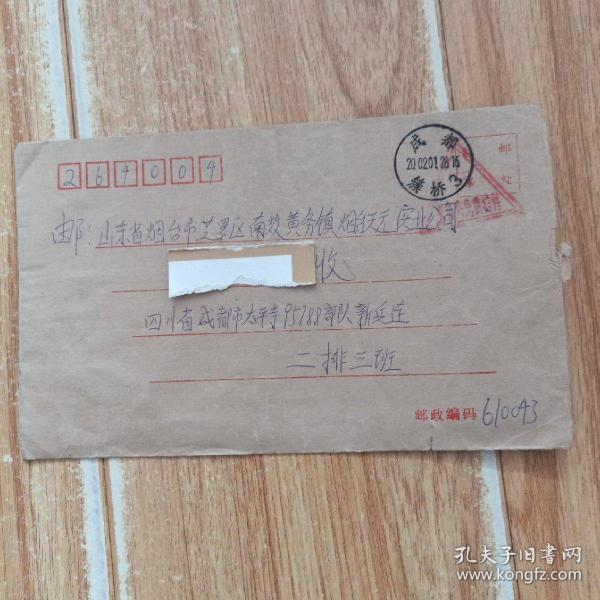 264004
成都
2002.01.28.16
簇桥 3
邮
邮: 山东省烟台市芝罘区南郊黄务镇烟台天元实业公司
收
四川省成都市太平寺95788部队新兵连
二排三班
邮政编码 610043
孔夫子旧书网
www.kongfz.com